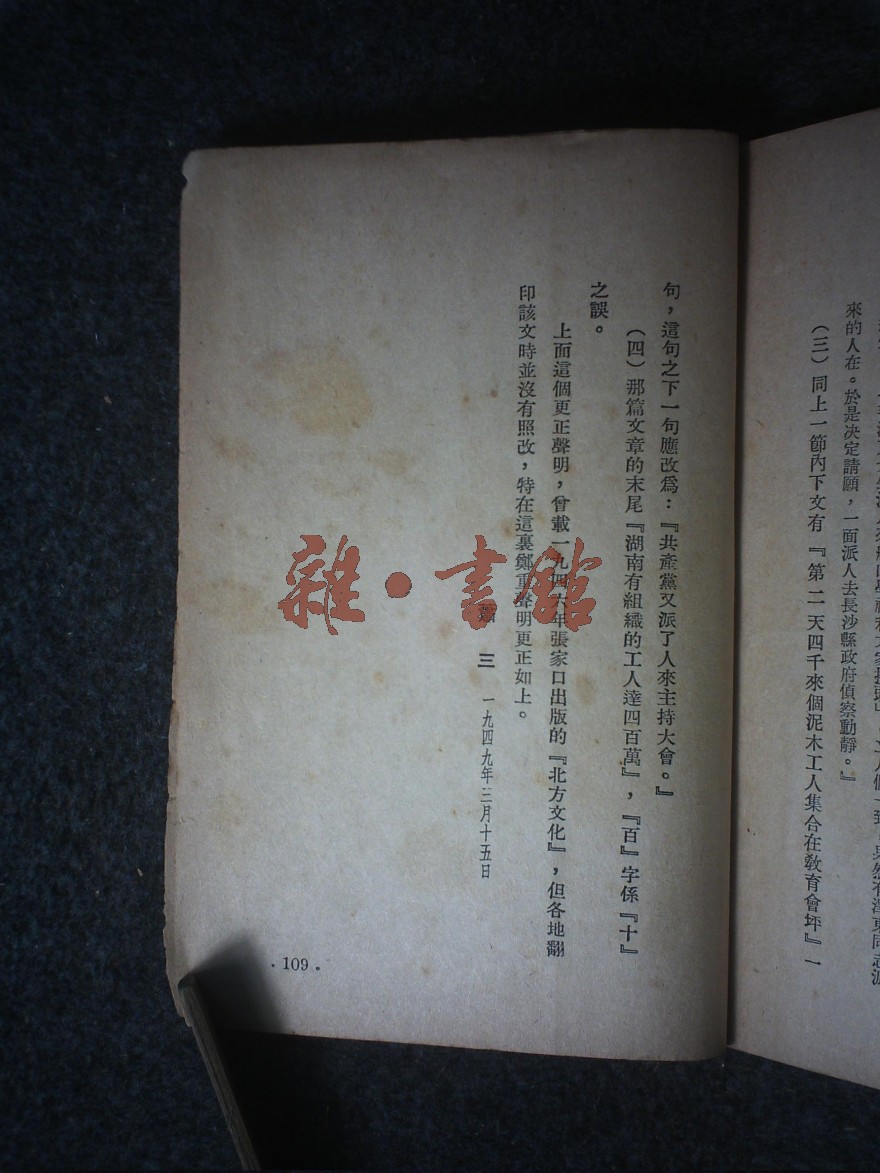 來的人在。於是决定請願,一面派人去長沙縣政府偵察動靜。』
(三)同上一節內下文有『第二天四千來個泥木工人集合在敎育會坪』一
句,這句之下一句應改爲:『共產黨又派了人來主持大會。』
(四)那篇文章的末尾『湖南有組織的工人達四百萬』,『百』字係『十』
之誤。
上面這個更正聲明,曾載一九四六年張家口出版的『北方文化』,但各地翻
印該文時並沒有照改,特在這裏鄭重聲明更正如上。
三 一九四九年三月十五日
·109·
雜·書館